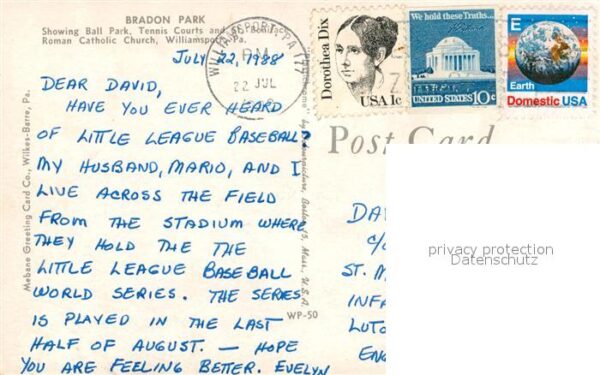 BRADON PARK
Showing Ball Park, Tennis Courts and St. Boniface
Roman Catholic Church, Williamsport, Pa.
WILLIAMSPORT, PA
PM
22 JUL
Dorothea Dix
USA 1c
We hold these Truths...
UNITED STATES 10c
E
Earth
Domestic USA
JULY 22, 1988
DEAR DAVID,
HAVE YOU EVER HEARD
OF LITTLE LEAGUE BASEBALL?
MY HUSBAND, MARIO, AND I
LIVE ACROSS THE FIELD
FROM THE STADIUM WHERE
THEY HOLD THE THE
LITTLE LEAGUE BASEBALL
WORLD SERIES. THE SERIES
IS PLAYED IN THE LAST
HALF OF AUGUST. — HOPE
YOU ARE FEELING BETTER. EVELYN
Mebane Greeting Card Co., Wilkes-Barre, Pa.
Boston 15, Mass., U.S.A.
WP-50
Post Card
DAV
C/O
ST. M
INFA
LUTO
ENG
privacy protection
Datenschutz